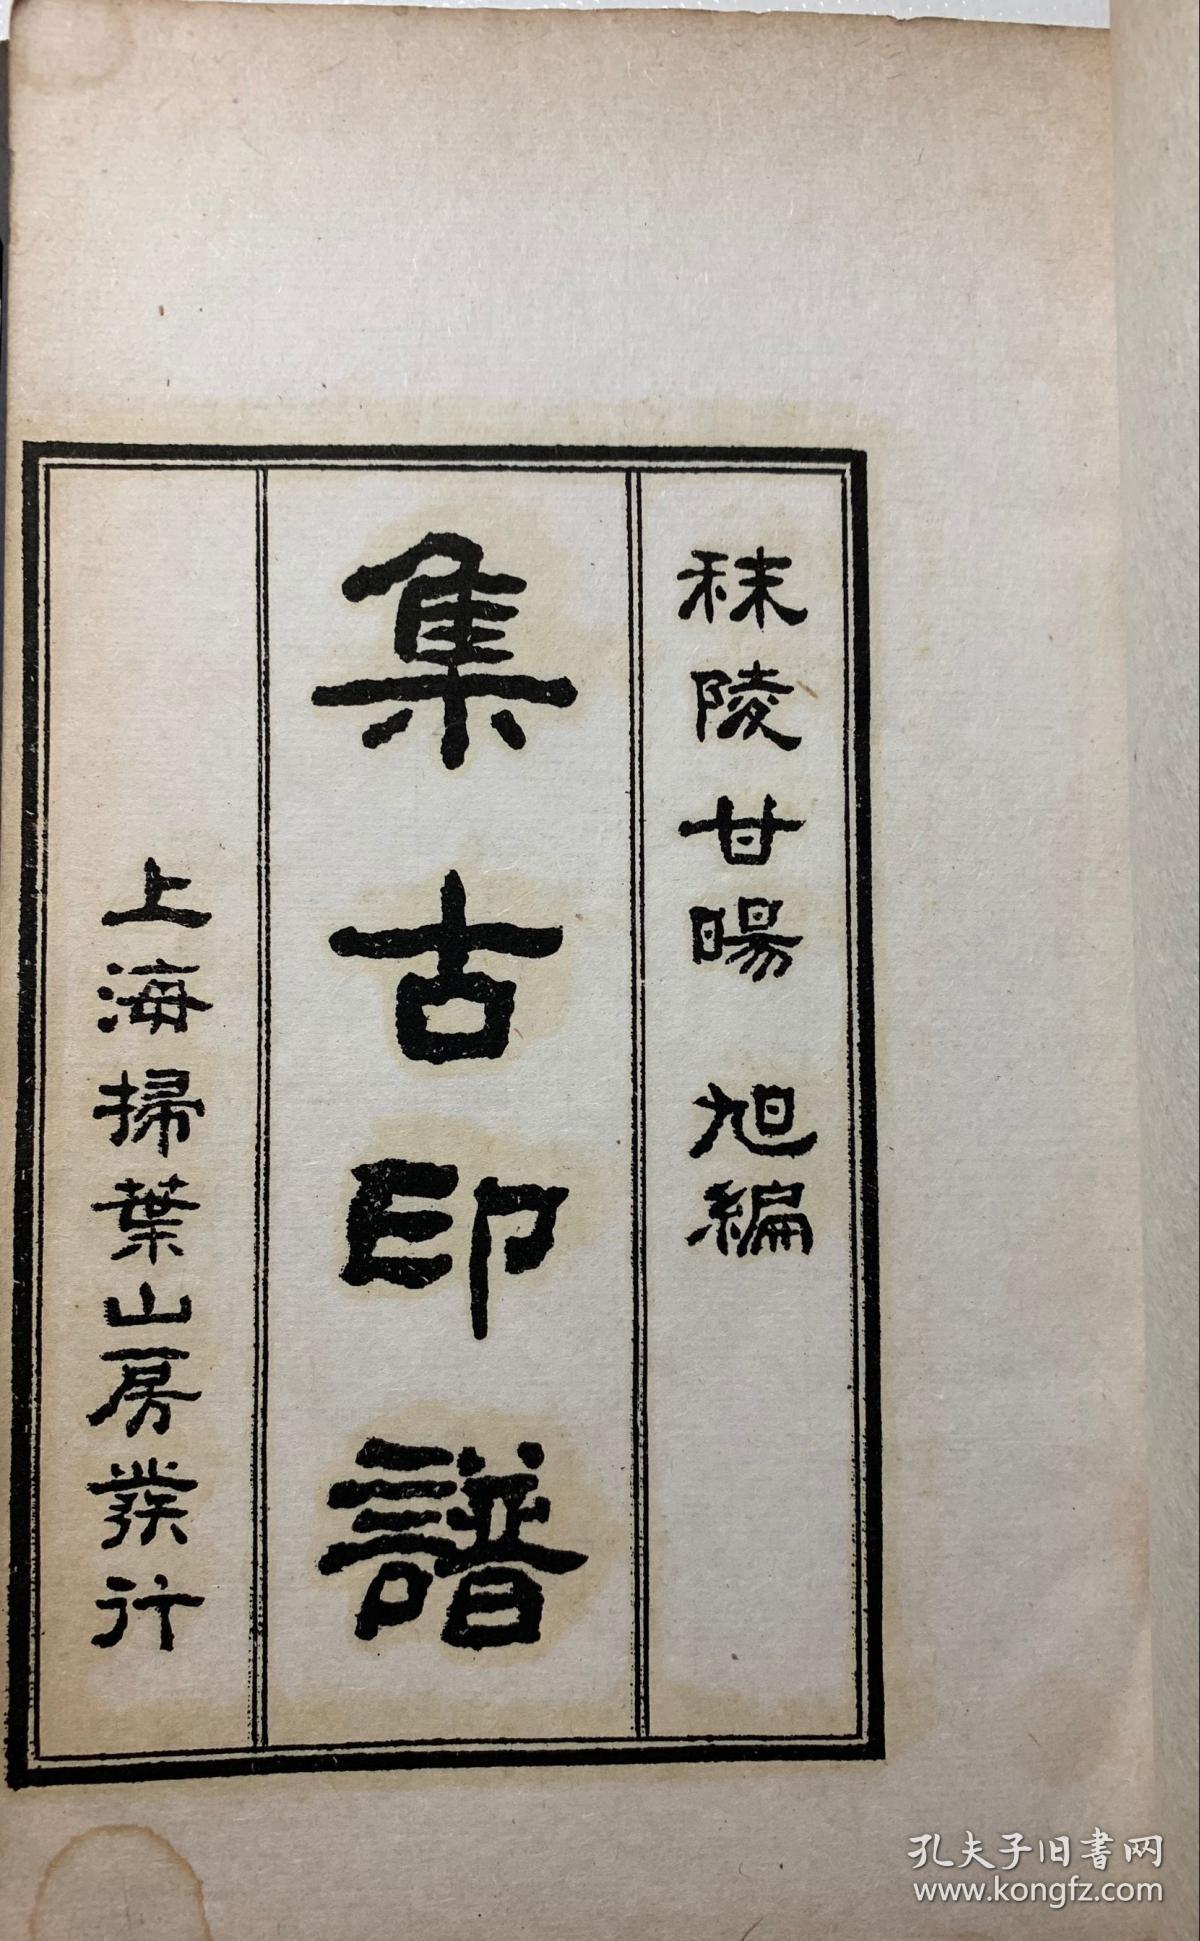 秣陵甘暘 旭編
集古印譜
上海掃葉山房發行
孔夫子旧书网
www.kongfz.com